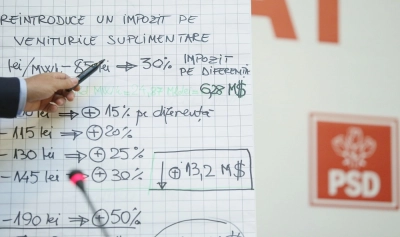 REINTRODUCE UN IMPOZIT PE
VENITURILE SUPLIMENTARE
lei/MWh - 85 lei ⇒ 30% IMPOZIT
PE DIFERENȚĂ
628 M$
lei ⇒ ⊕ 15% pe diferență
-115 lei ⇒ ⊕ 20%
-130 lei ⇒ ⊕ 25%
-145 lei ⇒ ⊕ 30%
↓ ⊕ 13,2 M$
-190 lei ⇒ ⊕ 50%
AT
PSD